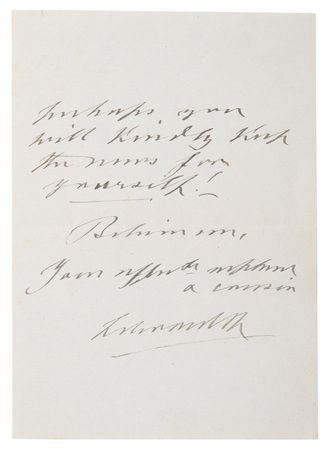 perhaps you
will kindly keep
the news for
yourself!
Believe me,
Your affecte nephew
& cousin